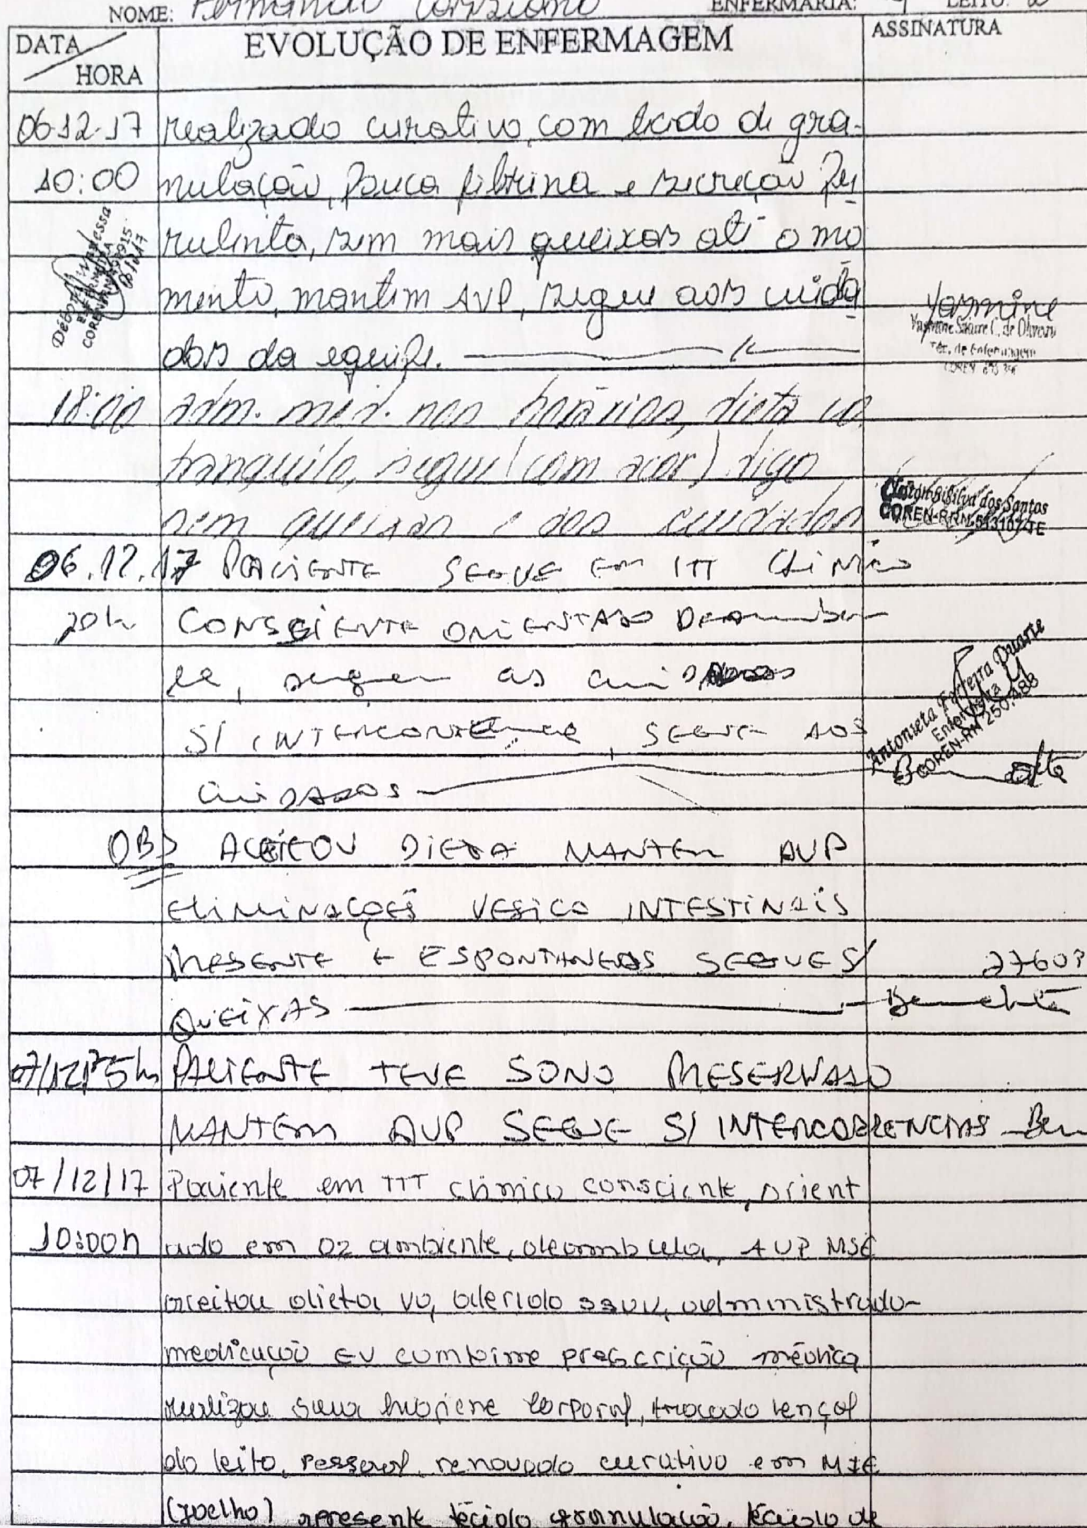 NOME: Fernando ENFERMARIA: LEITO: 2
DATA HORA EVOLUÇÃO DE ENFERMAGEM ASSINATURA
06.12.17 realizado curativo, com tecido de gra-
10:00 nulação, pouca fibrina e secreção Pu
rulenta, sem mais queixas até o mo
mento, mantém AVP, segue aos cuida
dos da equipe.
Yasmine
Téc. de Enfermagem
18:00 adm. med. nos horários, dieta vo
tranquilo, segue (com acor) digo
sem queixas e aos cuidados
dos Santos
COREN-RN
06.12.17 PACIENTE SEGUE Em ITT CLiNico
20h CONSCIENTE ORIENTADO Deambu
la, segue as cuidados
S/ INTERCORRENCE, SEGUE AOS
CuiDADOS
Antonieta Ferreira Duarte
Enfermeira
COREN-RN 250.488
OBS ACEITOU DIETA MANTEM AVP
ELiMiNAÇOES VESICO INTESTINAIS
PRESENTE E ESPONTANEAS SEGUE S/ 27603
QUEiXAS
07/12/17 5hs PACIENTE TEVE SONO PRESERVADO
MANTÉM AVP SEGUE S/ INTERCORRENCIAS
07/12/17 Paciente em TTT clinico consciente, orient
10:00h ado em O2 ambiente, deambula, AVP MSE
aceitou dieta VO, aferido SSVV, administrado
medicação EV combirme prescrição médica
realizou sua higiene corporal, trocado lençol
do leito, pessoal, renovado curativo em MIE
(joelho) apresente tecido granulação, tecido de